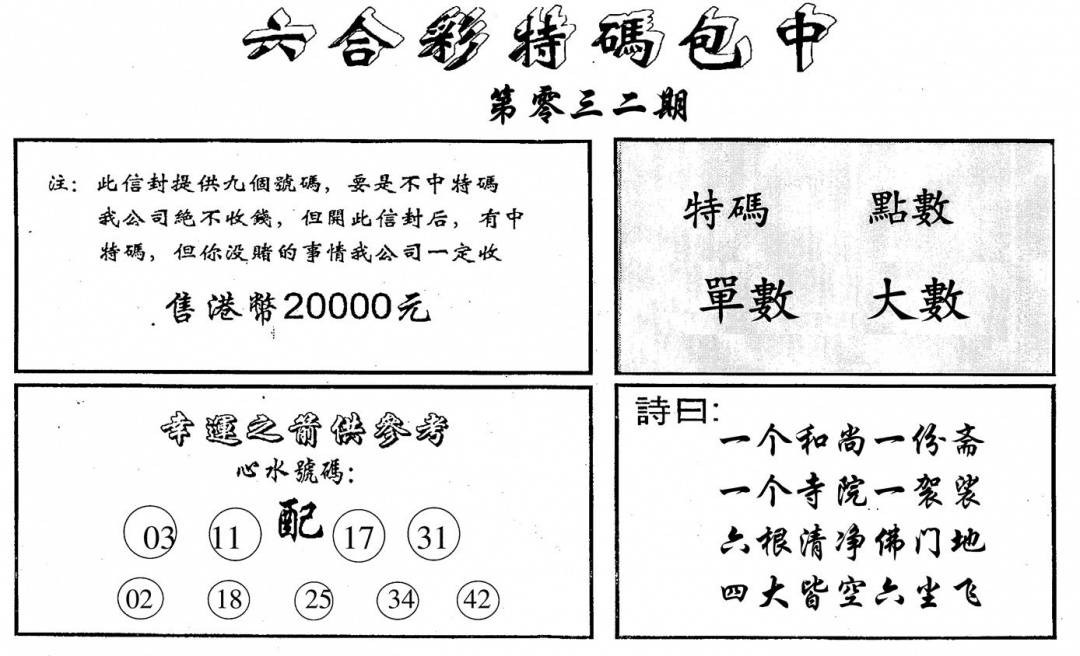 六合彩特碼包中
第零三二期
注：此信封提供九個號碼，要是不中特碼
我公司絕不收錢，但開此信封后，有中
特碼，但你没賭的事情我公司一定收
售港幣20000元
特碼 點數
單數 大數
幸運之箭供參考
心水號碼：
03 11 配 17 31
02 18 25 34 42
詩曰：
一个和尚一份斋
一个寺院一袈裟
六根清净佛门地
四大皆空六尘飞